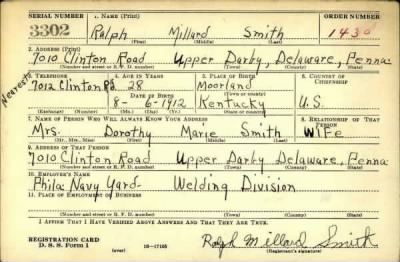 SERIAL NUMBER 1. NAME (Print) ORDER NUMBER
3302 Ralph Millard Smith 1430
(First) (Middle) (Last)
2. ADDRESS (Print)
7010 Clinton Road Upper Darby, Delaware, Penna
(Number and street or R. F. D. number) (Town) (County) (State)
Nearest
3. TELEPHONE 4. AGE IN YEARS 5. PLACE OF BIRTH 6. COUNTRY OF CITIZENSHIP
7012 Clinton Rd 28 Moorland
DATE OF BIRTH (Town or county)
8- 6-1912 Kentucky U.S.
(Mo.) (Day) (Yr.) (State or country)
7. NAME OF PERSON WHO WILL ALWAYS KNOW YOUR ADDRESS 8. RELATIONSHIP OF THAT PERSON
Mrs. Dorothy Marie Smith Wife
(Mr., Mrs., Miss) (First) (Middle) (Last)
9. ADDRESS OF THAT PERSON
7010 Clinton Road Upper Darby Delaware, Penna
(Number and street or R. F. D. number) (Town) (County) (State)
10. EMPLOYER'S NAME
Phila Navy Yard- Welding Division
11. PLACE OF EMPLOYMENT OR BUSINESS
(Number and street or R. F. D. number) (Town) (County) (State)
I AFFIRM THAT I HAVE VERIFIED ABOVE ANSWERS AND THAT THEY ARE TRUE.
REGISTRATION CARD
D. S. S. Form 1 (over) 16-17105 Ralph Millard Smith
(Registrant's signature)